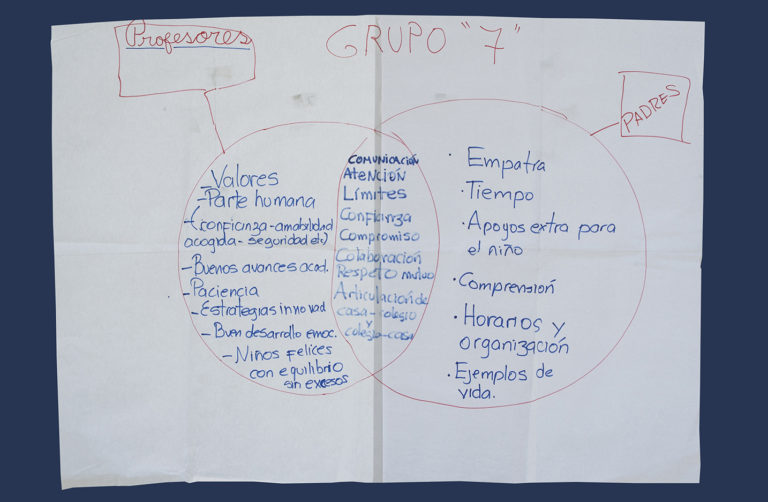 Profesores
GRUPO "7"
PADRES
- Valores
- Parte humana
- (confianza - amabilidad
acogida - seguridad etc)
- Buenos avances acad.
- Paciencia
- Estrategias innovad
- Buen desarrollo emoc.
- Niños felices
con equilibrio
sin excesos
COMUNICACIÓN
Atención
Límites
Confianza
Compromiso
Colaboración
Respeto mutuo
Articulación de
casa - colegio
y
colegio - casa
· Empatía
· Tiempo
· Apoyos extra para
el niño
· Comprensión
· Horarios y
organización
· Ejemplos de
vida.